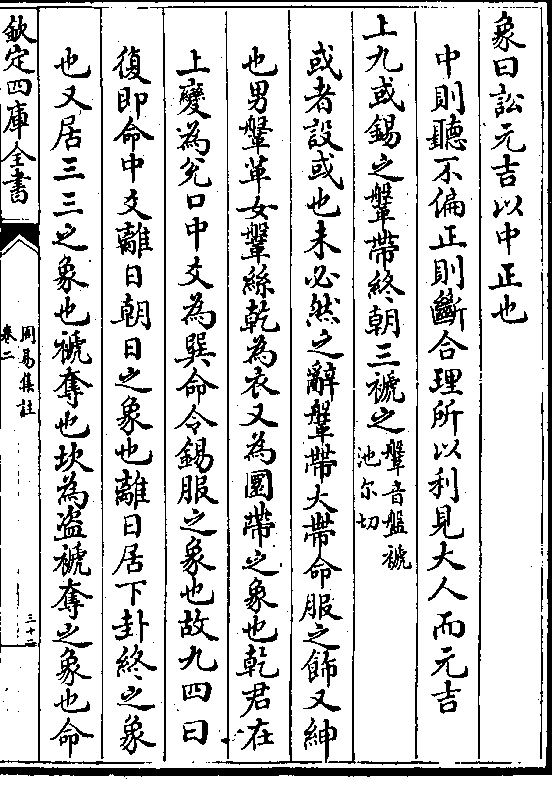 象曰訟元吉以中正也
中則聽不偏正則斷合理所以利見大人而元吉
上九或錫之鞶帶終朝三褫之鞶音盤褫
池尔切
或者設或也未必然之辭鞶帶大帶命服之飾又紳
也男鞶革女鞶絲乾為衣又為圜帶之象也乾君在
上變為兊口中爻為巽命令錫服之象也故九四曰
復即命中爻離日朝日之象也離日居下卦終之象
也又居三三之象也褫奪也坎為盜褫奪之象也命
欽定四庫全書
周易集註
卷二
三十二